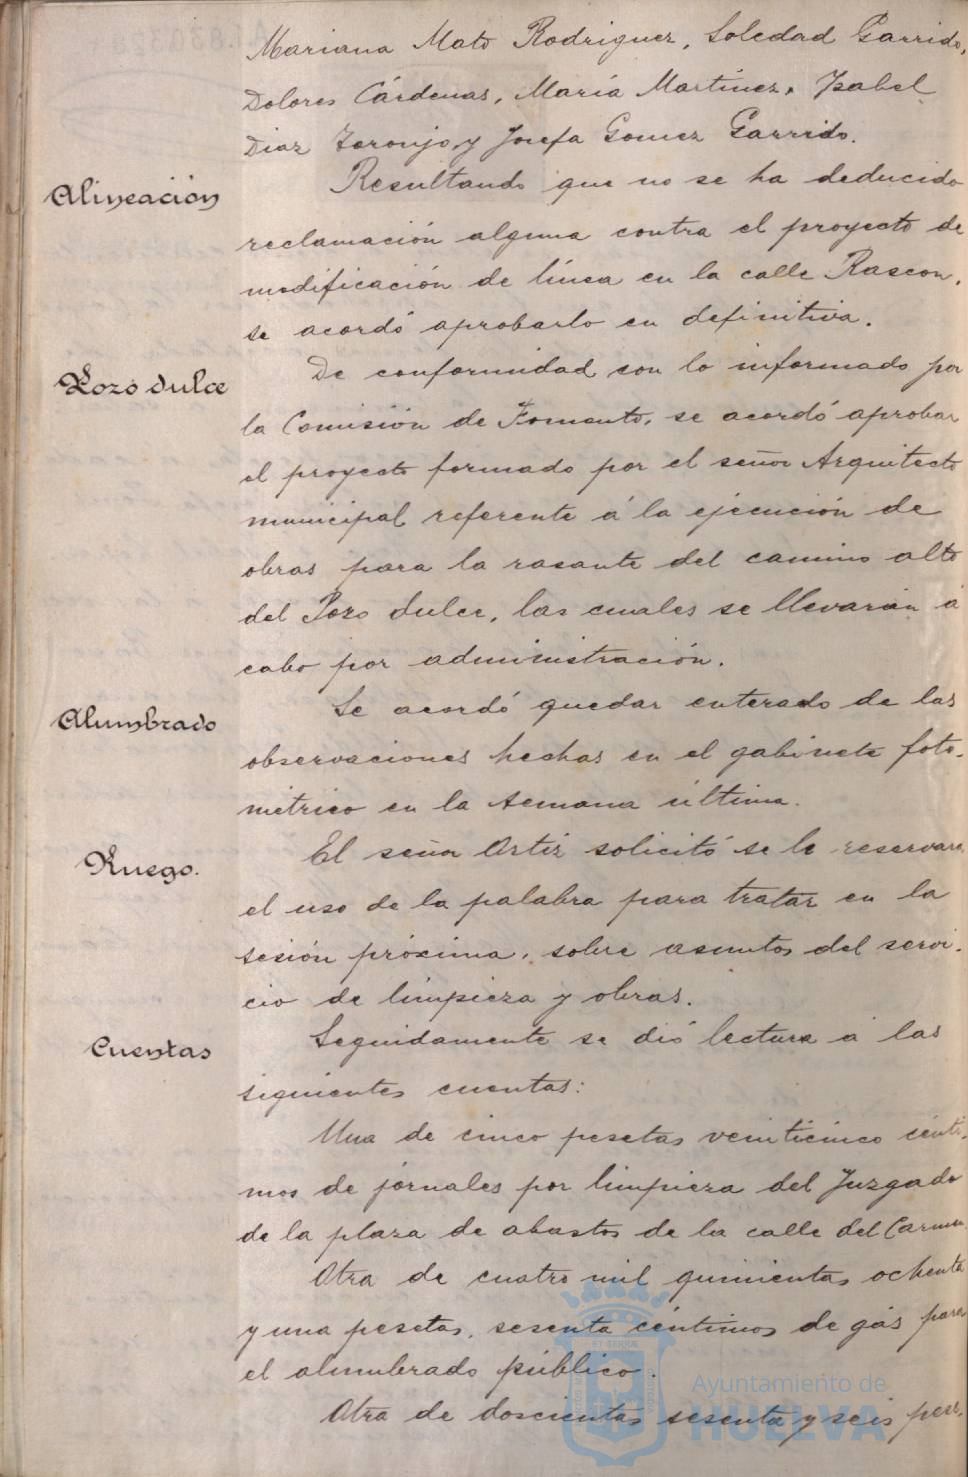 Mariana Mato Rodriguez, Soledad Garrido,
Dolores Cárdenas, María Martinez, Isabel
Diaz Toronjo y Josefa Gomez Garrido.
Alineación
Resultando que no se ha deducido
reclamación alguna contra el proyecto de
modificación de línea en la calle Rascon,
se acordó aprobarlo en definitiva.
Pozo dulce
De conformidad con lo informado por
la Comisión de Fomento, se acordó aprobar
el proyecto formado por el señor Arquitecto
municipal referente á la ejecución de
obras para la rasante del camino alto
del Pozo dulce, las cuales se llevarán á
cabo por administración.
Alumbrado
Se acordó quedar enterado de las
observaciones hechas en el gabinete foto-
métrico en la semana última.
Ruego.
El señor Ortiz solicitó se le reservara
el uso de la palabra para tratar en la
sesión próxima, sobre asuntos del servi-
cio de limpieza y obras.
Cuentas
Seguidamente se dió lectura á las
siguientes cuentas:
Una de cinco pesetas veinticinco cénti-
mos de jornales por limpieza del Juzgado
de la plaza de abastos de la calle del Carmen.
Otra de cuatro mil quinientas ochenta
y una pesetas, sesenta céntimos de gás para
el alumbrado público.
Otra de doscientas sesenta y seis pese-
Ayuntamiento de
HUELVA